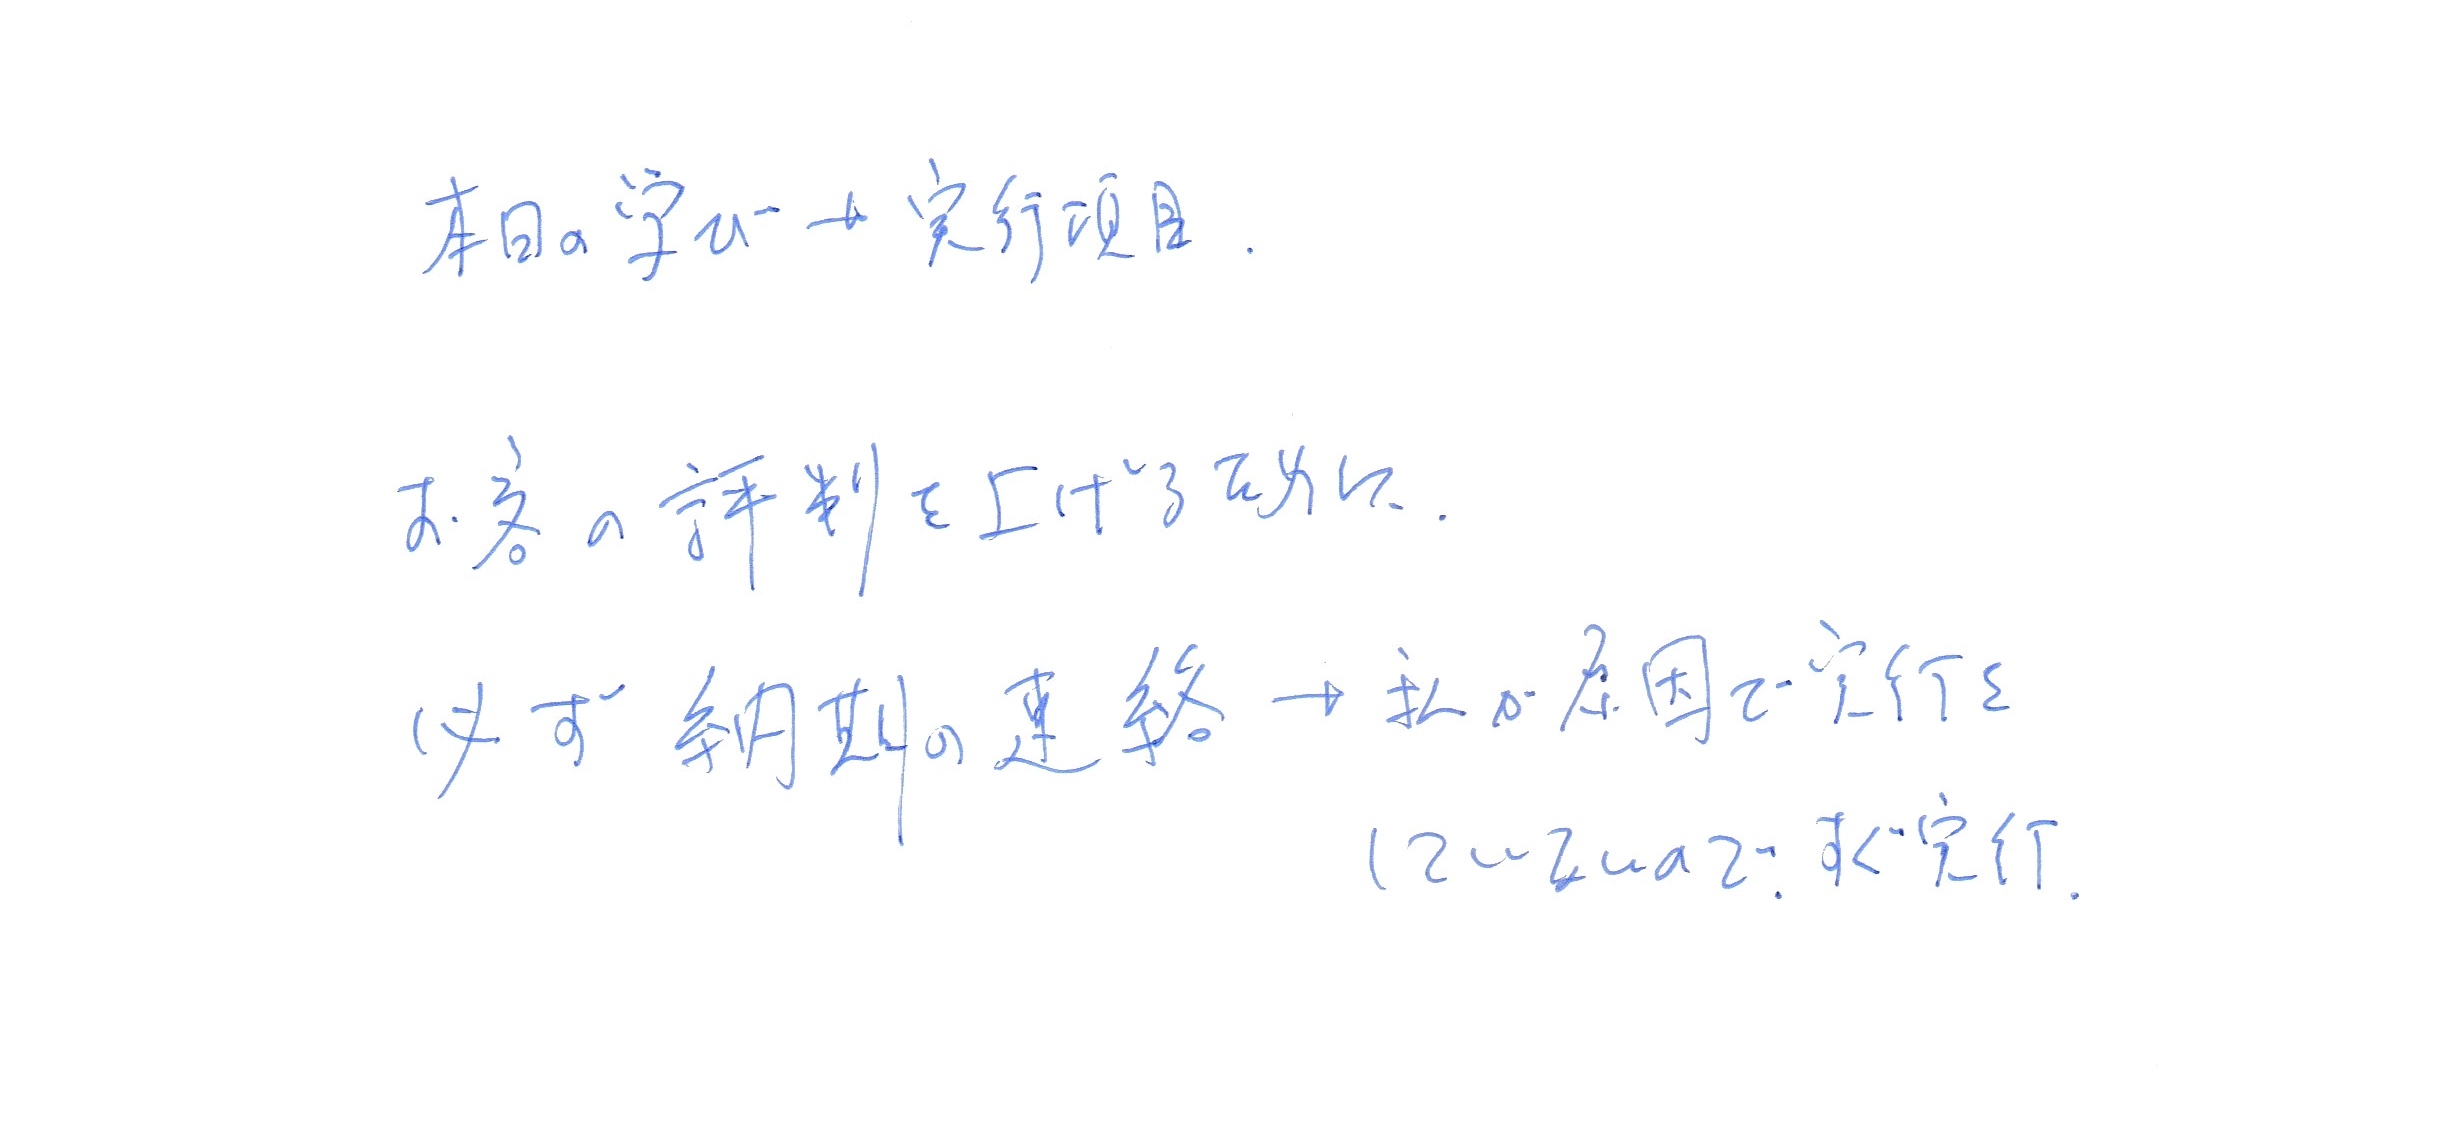 本日の学び→実行項目.
お客の評判を上げる為に.
必ず納期の連絡→私が原因で実行を
していないので.すぐ実行.